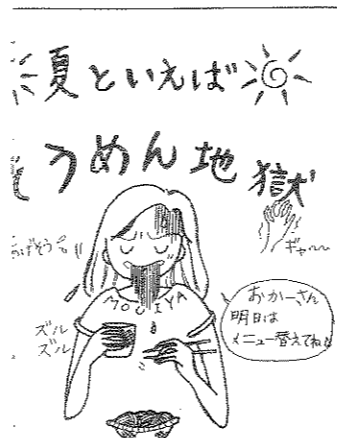 夏といえば
うめん地獄
ギャー
MOUIYA
ズル
ズル
おかーさん
明日は
メニュー替えてね